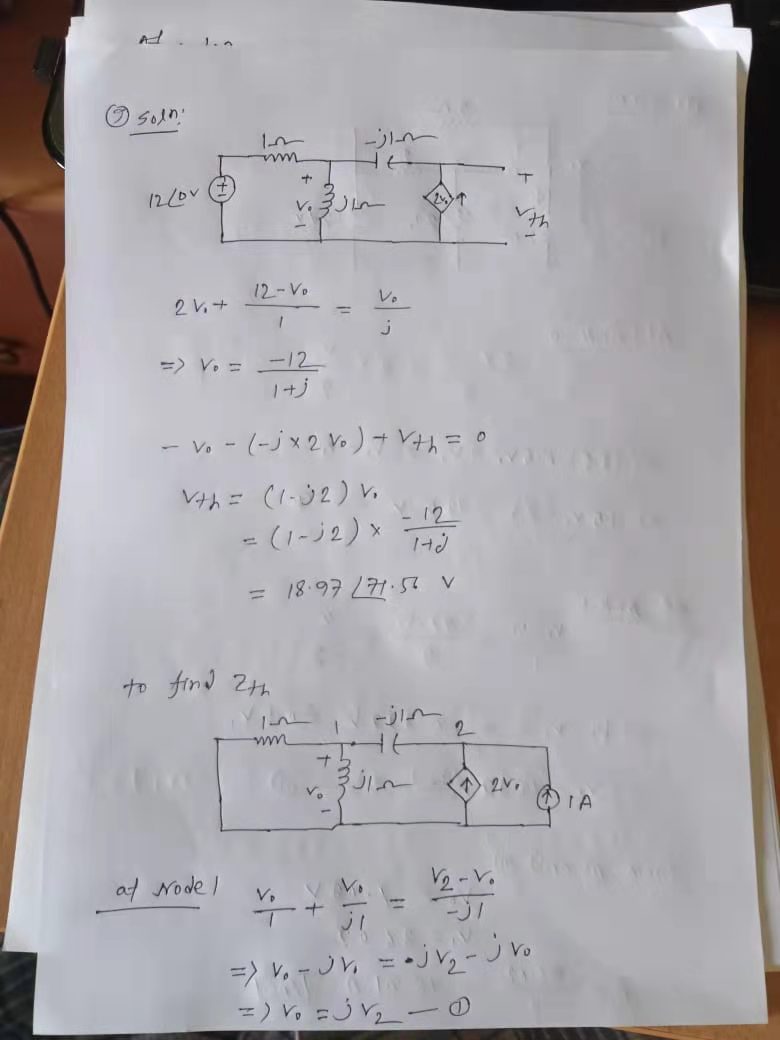 ② Soln:
1Ω -j1Ω
12∠0V + V₀ - j1Ω 2V₀ + Vth -
2V₀ + (12-V₀)/1 = V₀/j
=> V₀ = -12/(1+j)
- V₀ - (-j×2V₀) + Vth = 0
Vth = (1-j2) V₀
= (1-j2) × -12/(1+j)
= 18.97 ∠71.56 V
to find Zth
1Ω 1 -j1Ω 2
+ V₀ - j1Ω 2V₀ 1A
at Node 1 V₀/1 + V₀/j1 = (V₂-V₀)/-j1
=> V₀ - jV₀ = jV₂ - jV₀
=> V₀ = jV₂ — ①